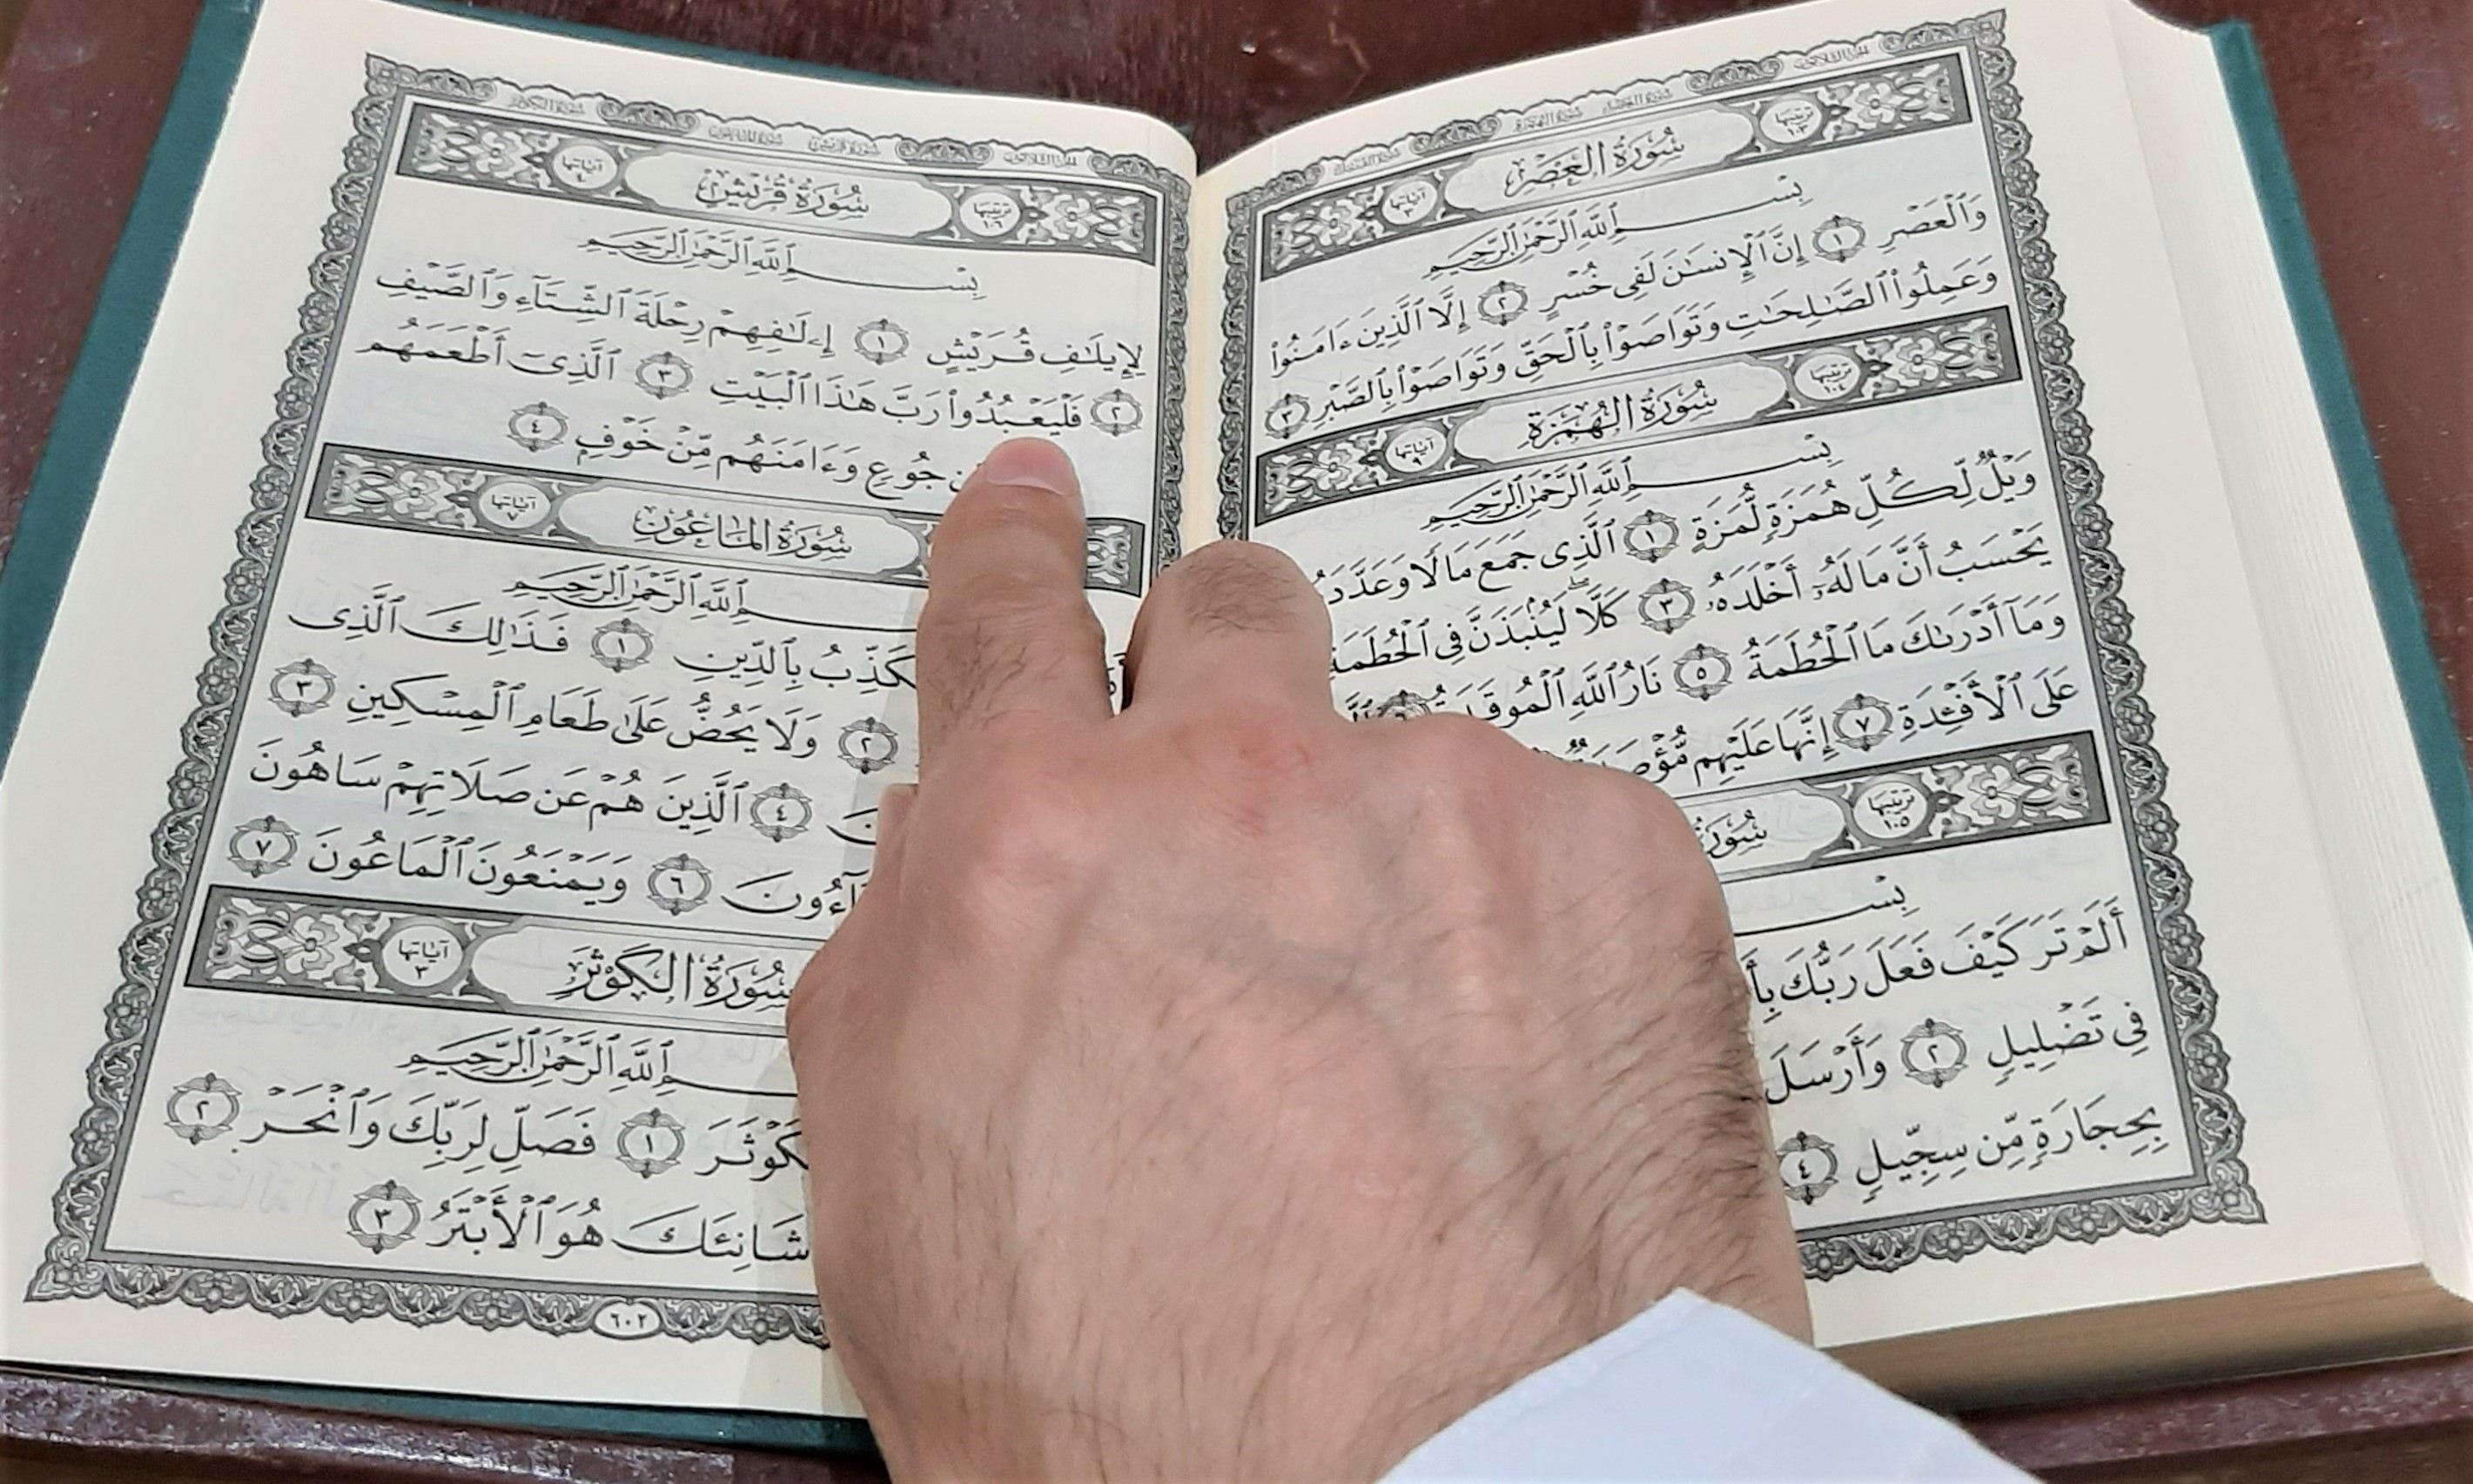 سُورَةُ العَصْرِ
ترتيبها ١٠٣
آياتها ٣
بِسْمِ ٱللَّهِ ٱلرَّحْمَٰنِ ٱلرَّحِيمِ
وَٱلْعَصْرِ ١ إِنَّ ٱلْإِنسَٰنَ لَفِى خُسْرٍ ٢ إِلَّا ٱلَّذِينَ ءَامَنُوا۟
وَعَمِلُوا۟ ٱلصَّٰلِحَٰتِ وَتَوَاصَوْا۟ بِٱلْحَقِّ وَتَوَاصَوْا۟ بِٱلصَّبْرِ ٣
ترتيبها ١٠٤
سُورَةُ الهُمَزَةِ
آياتها ٩
بِسْمِ ٱللَّهِ ٱلرَّحْمَٰنِ ٱلرَّحِيمِ
وَيْلٌ لِّكُلِّ هُمَزَةٍ لُّمَزَةٍ ١ ٱلَّذِى جَمَعَ مَالًا وَعَدَّدَهُۥ
يَحْسَبُ أَنَّ مَالَهُۥٓ أَخْلَدَهُۥ ٣ كَلَّا ۖ لَيُنۢبَذَنَّ فِى ٱلْحُطَمَةِ
وَمَآ أَدْرَىٰكَ مَا ٱلْحُطَمَةُ ٥ نَارُ ٱللَّهِ ٱلْمُوقَدَةُ ٦
عَلَى ٱلْأَفْـِٔدَةِ ٧ إِنَّهَا عَلَيْهِم مُّؤْصَدَةٌ
ترتيبها ١٠٥
سُورَةُ
بِسْمِ
أَلَمْ تَرَ كَيْفَ فَعَلَ رَبُّكَ
فِى تَضْلِيلٍ ٢ وَأَرْسَلَ
بِحِجَارَةٍ مِّن سِجِّيلٍ ٤
ترتيبها ١٠٦
سُورَةُ قُرَيْشٍ
آياتها ٤
بِسْمِ ٱللَّهِ ٱلرَّحْمَٰنِ ٱلرَّحِيمِ
لِإِيلَٰفِ قُرَيْشٍ ١ إِۦلَٰفِهِمْ رِحْلَةَ ٱلشِّتَآءِ وَٱلصَّيْفِ
٢ فَلْيَعْبُدُوا۟ رَبَّ هَٰذَا ٱلْبَيْتِ ٣ ٱلَّذِىٓ أَطْعَمَهُم
جُوعٍ وَءَامَنَهُم مِّنْ خَوْفٍۭ ٤
سُورَةُ المَاعُونِ
آياتها ٧
بِسْمِ ٱللَّهِ ٱلرَّحْمَٰنِ ٱلرَّحِيمِ
يُكَذِّبُ بِٱلدِّينِ ١ فَذَٰلِكَ ٱلَّذِى
٢ وَلَا يَحُضُّ عَلَىٰ طَعَامِ ٱلْمِسْكِينِ ٣
٤ ٱلَّذِينَ هُمْ عَن صَلَاتِهِمْ سَاهُونَ
٦ وَيَمْنَعُونَ ٱلْمَاعُونَ ٧
سُورَةُ الكَوْثَرِ
آياتها ٣
ٱللَّهِ ٱلرَّحْمَٰنِ ٱلرَّحِيمِ
ٱلْكَوْثَرَ ١ فَصَلِّ لِرَبِّكَ وَٱنْحَرْ ٢
شَانِئَكَ هُوَ ٱلْأَبْتَرُ ٣
٦٠٢